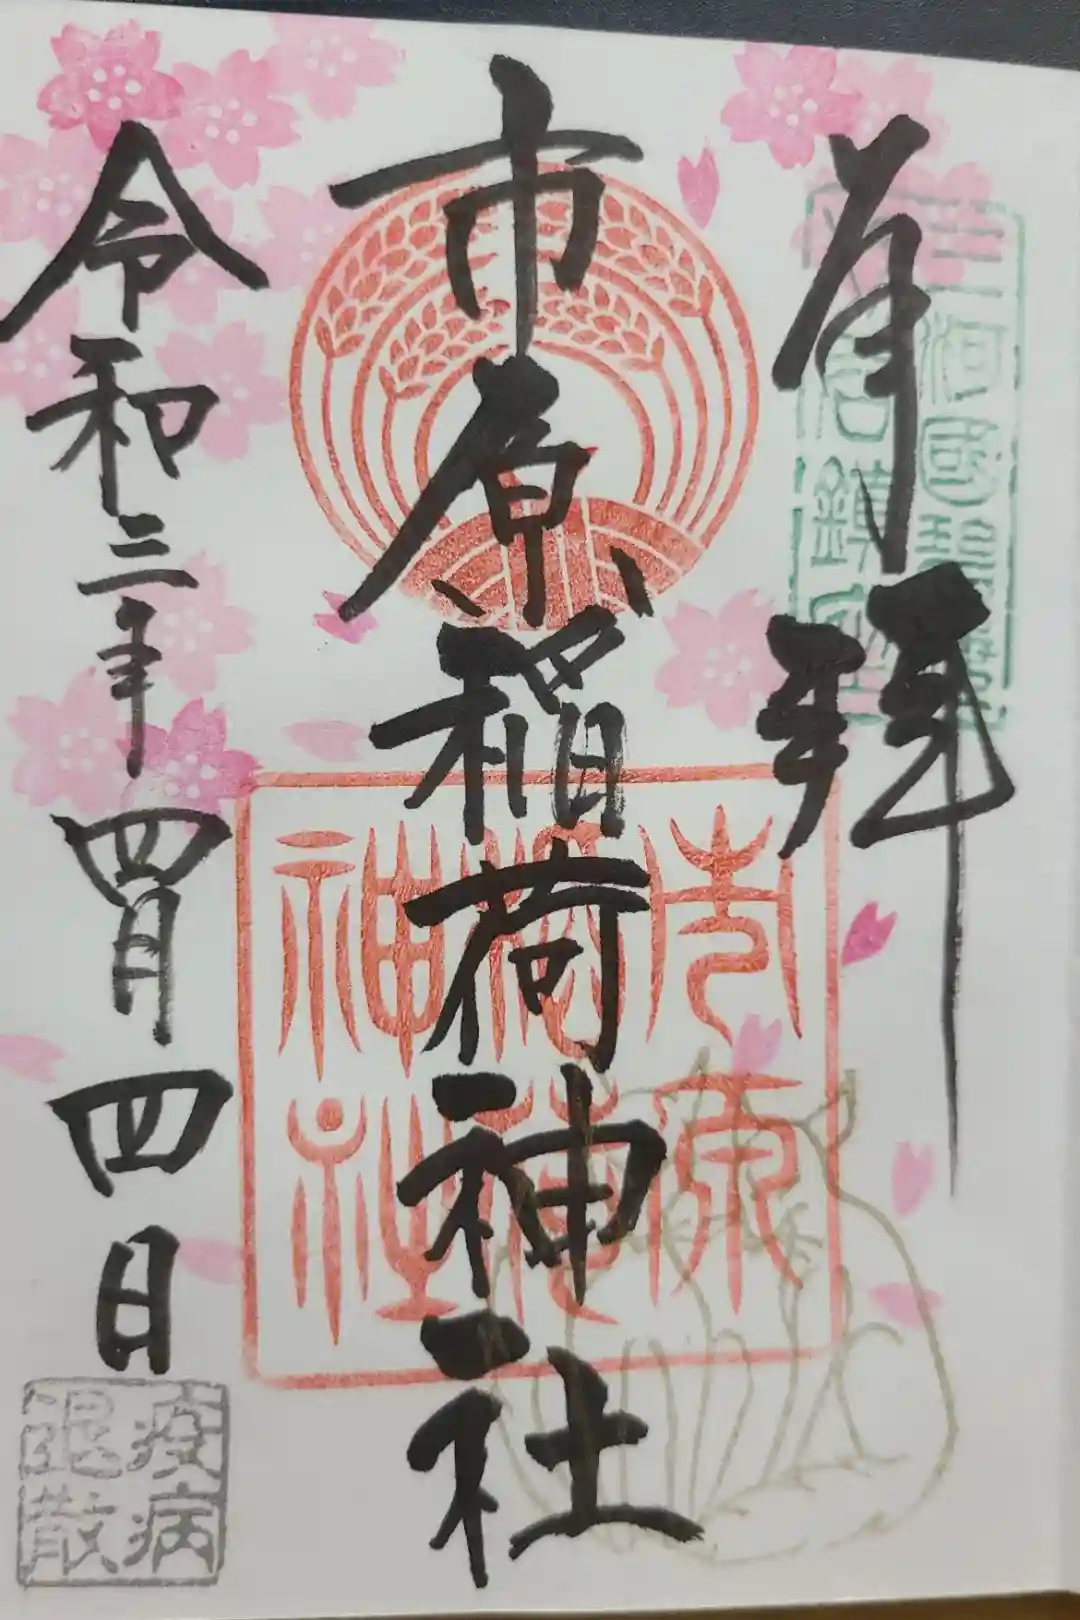 奉拜
三河國碧海
鎮座
市原稲荷神社
市原
稲荷
神社
令和三年四月四日
疫病
退散